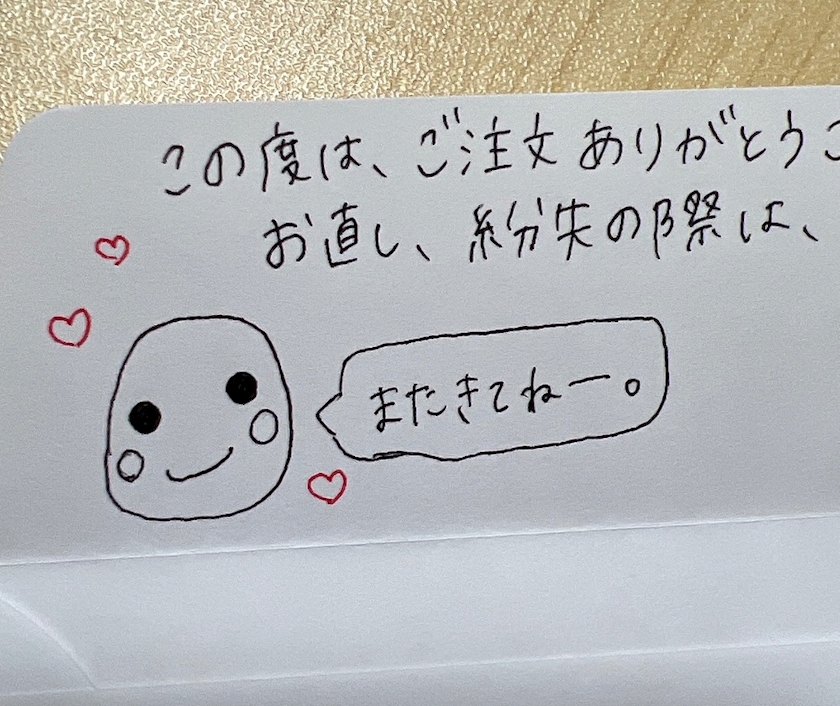 この度は、ご注文ありがとうご
お直し、紛失の際は、
またきてねー。